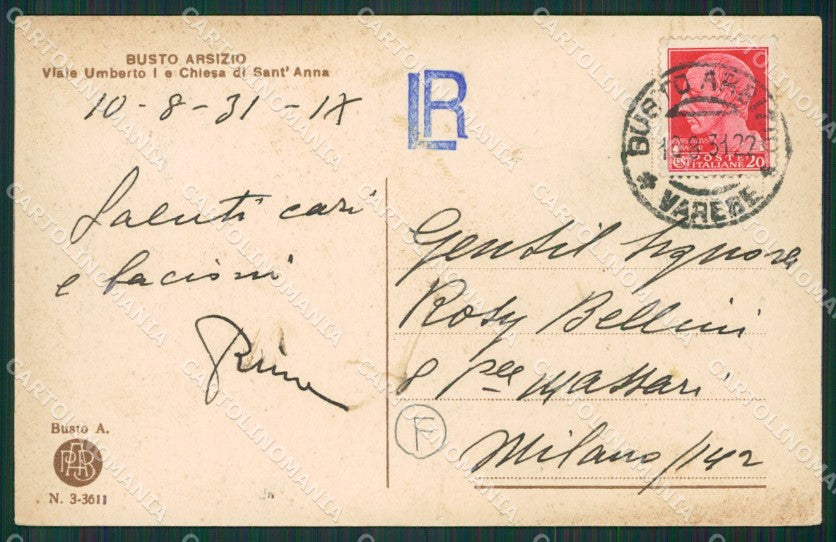 BUSTO ARSIZIO
Viale Umberto I e Chiesa di Sant'Anna
10-8-31-IX
Saluti cari
e bacioni
Rina
Busto A.
N. 3-3611
LR
BUSTO ARSIZIO
31.22
* VARESE *
POSTE
ITALIANE 20
Gentil Signora
Rosy Bellini
8 p.ee Massari
Milano/142
F
CARTOLINOMANIA